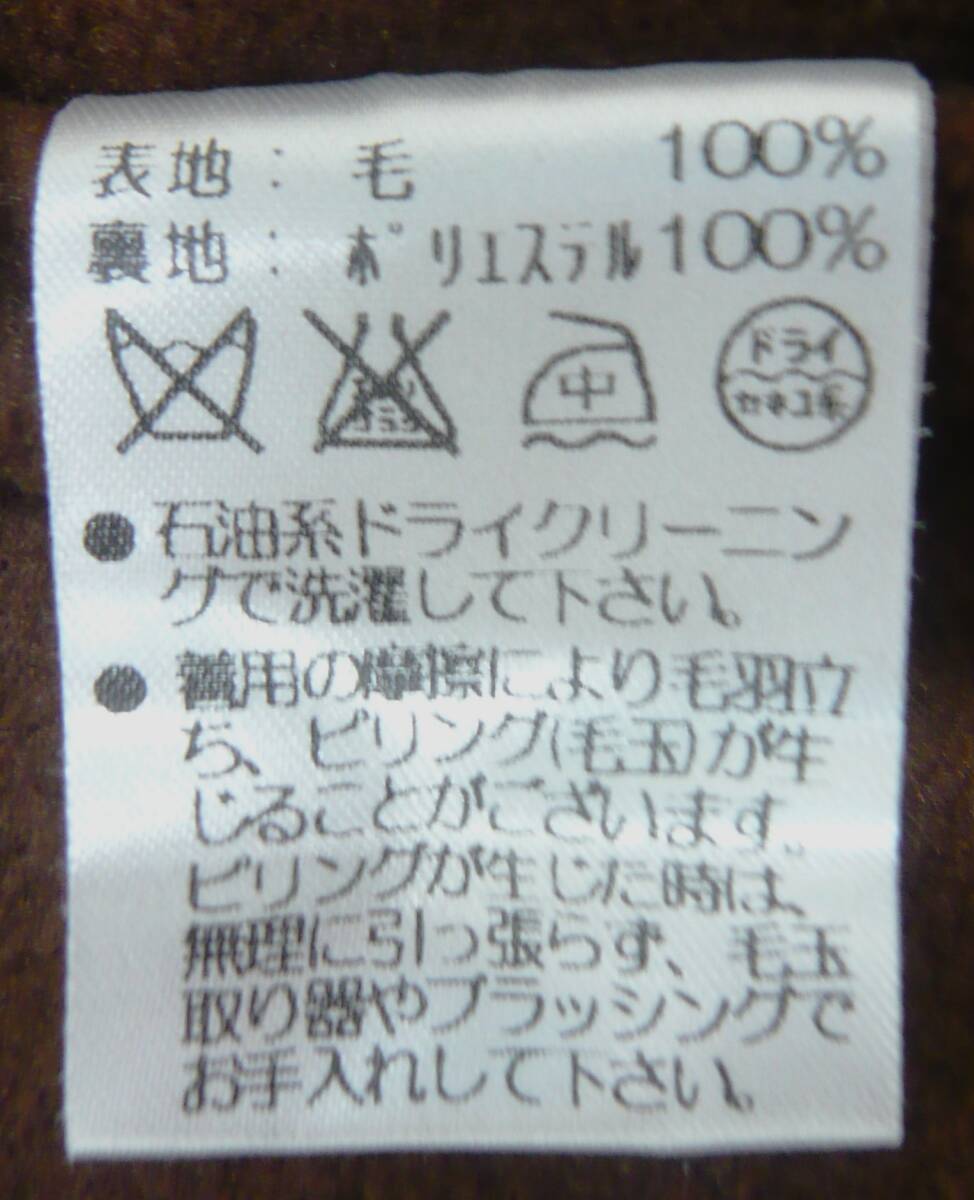 表地： 毛 100%
裏地： ポリエステル 100%
エンソ
サラシ
中
ドライ
セキユ系
●石油系ドライクリーニン
グで洗濯して下さい。
●着用の摩擦により毛羽立
ち、ピリング(毛玉)が生
じることがございます。
ピリングが生じた時は、
無理に引っ張らず、毛玉
取り器やブラッシングで
お手入れして下さい。